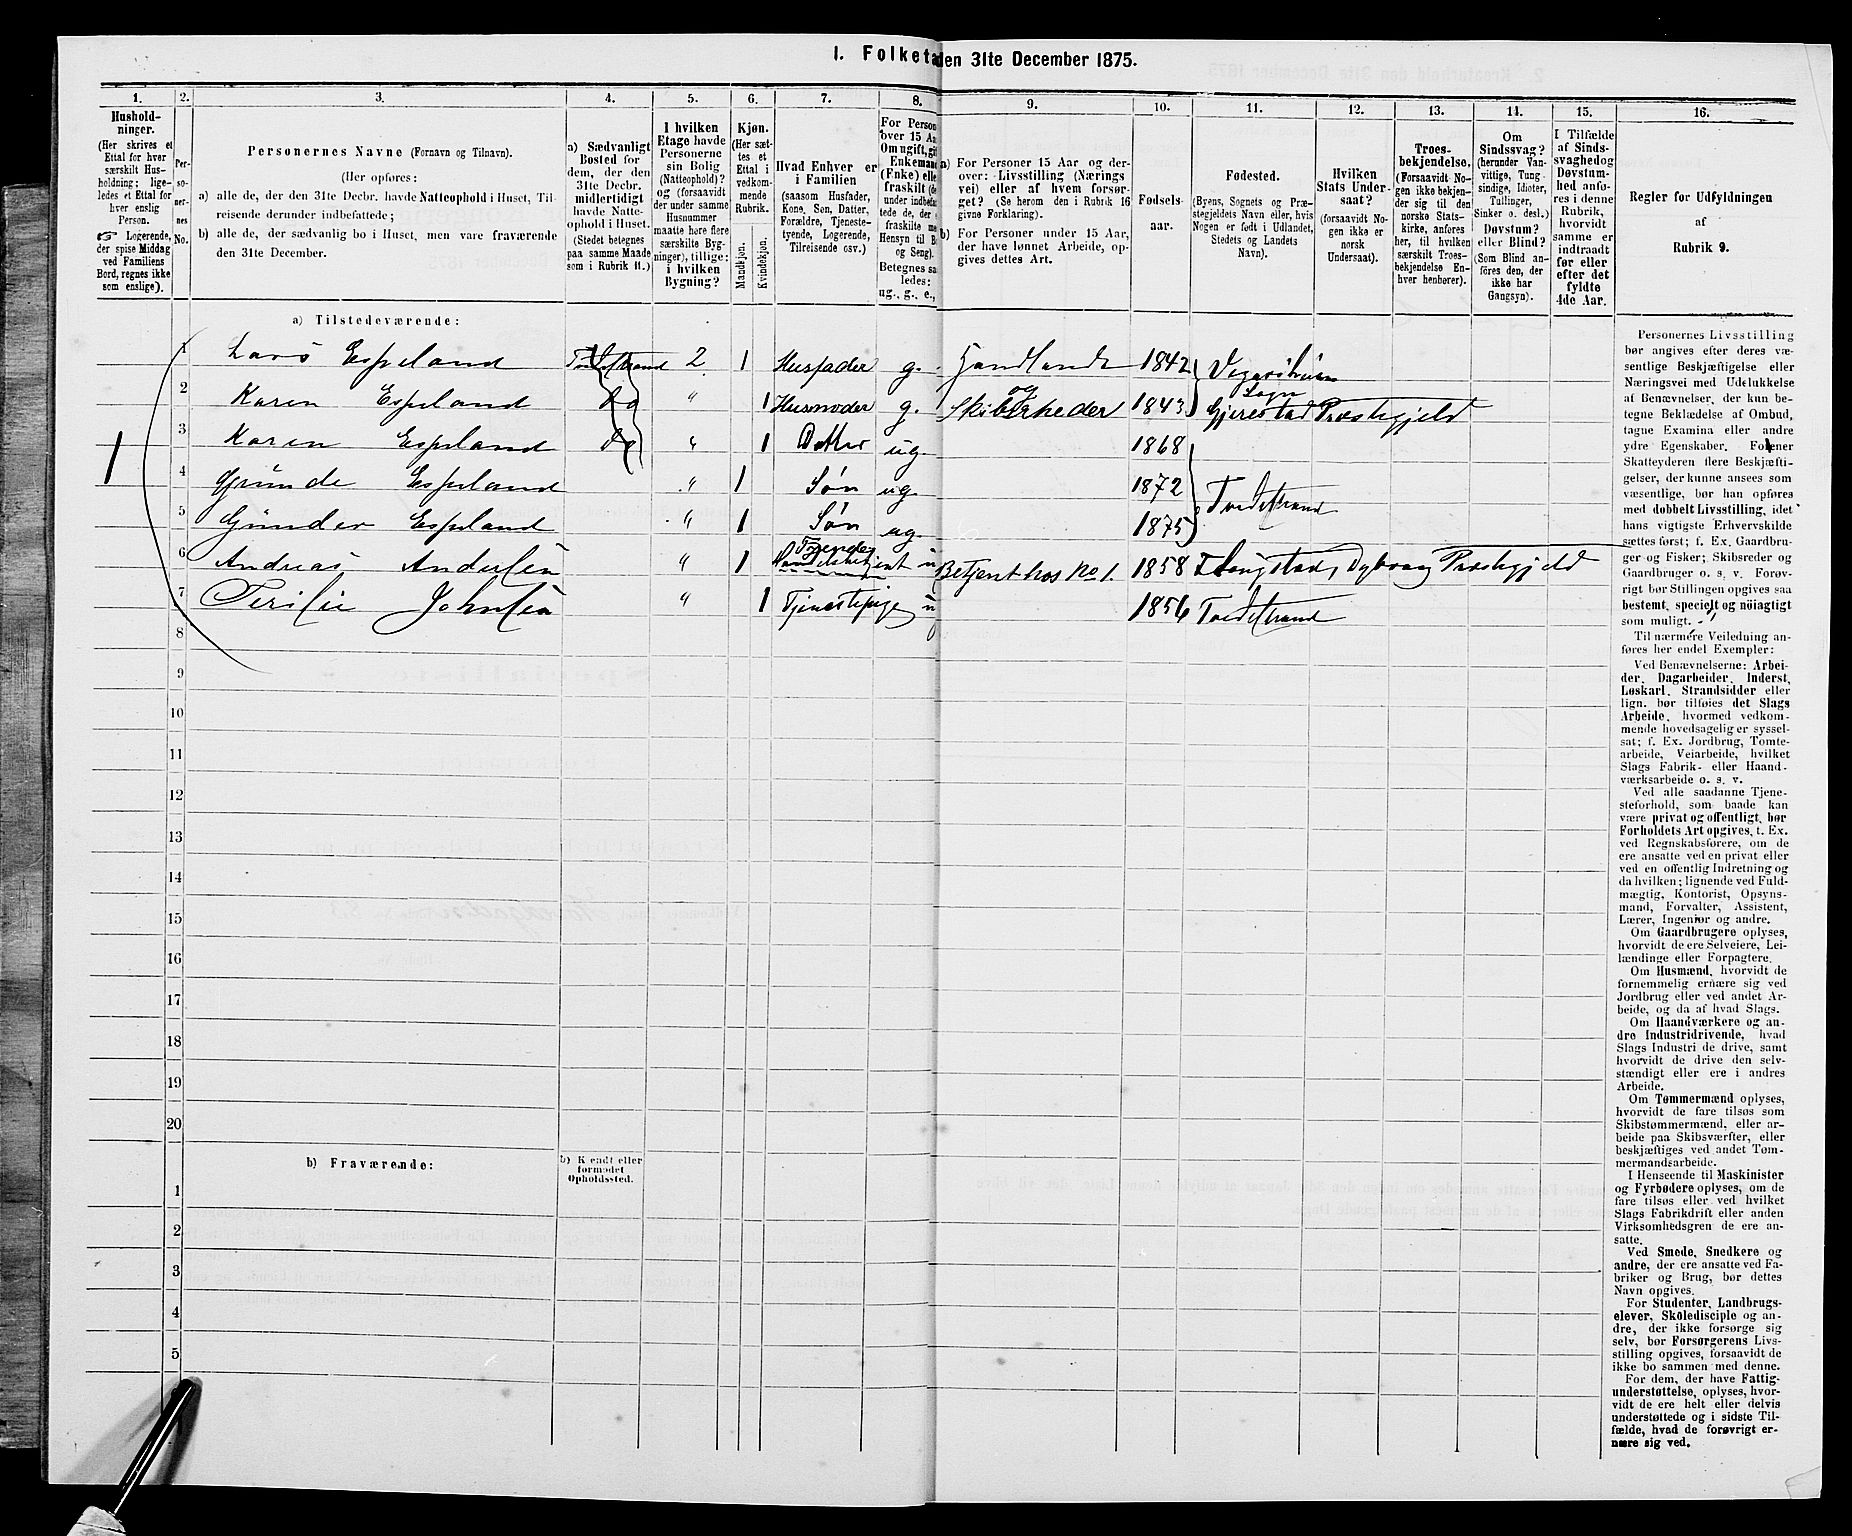 I. Folketæ den 31te December 1875.
1. 2. 3. 4. 5. 6. 7. 8. 9. 10. 11. 12. 13. 14. 15. 16.
Hushold-
ninger.
(Her skrives et
Ettal for hver
særskilt Hus-
holdning; lige-
ledes et Ettal for
hver enslig
Person.
☞ Logerende,
der spise Middag
ved Familiens
Bord, regnes ikke
som enslige).
Per-
so-
ner-
nes
No.
Personernes Navne (Fornavn og Tilnavn).
(Her opføres:
a) alle de, der den 31te Decbr. havde Natteophold i Huset, Til-
reisende derunder indbefattede;
b) alle de, der sædvanlig bo i Huset, men vare fraværende
den 31te December.
a) Sædvanligt
Bosted for
dem, der den
31te Decbr.
midlertidigt
havde Natte-
ophold i Huset.
(Stedet betegnes
paa samme Maade
som i Rubrik 11.)
I hvilken
Etage havde
Personerne
sin Bolig
(Natteophold)?
og (forsaavidt
der under samme
Husnummer
maatte høre flere
særskilte Byg-
ninger), tillige:
i hvilken
Bygning?
Kjøn.
(Her sæt-
tes et
Ettal i
vedkom-
mende
Rubrik.
Mandkjøn.
Kvindekjøn.
Hvad Enhver er
i Familien
(saasom Husfader,
Kone, Søn, Datter,
Forældre, Tjeneste-
tyende, Logerende,
Tilreisende osv.)
For Person
over 15 Aa
Om ugift, gi
Enkemand
(Enke) elle
fraskilt (de
under indbefat
tede de, der e
fraskilte me
Hensyn til B
og Seng).
Betegnes saa
ledes:
ug., g., e.,
a) For Personer 15 Aar og der-
over: Livsstilling (Nærings
vei) eller af hvem forsør-
get? (Se herom den i Rubrik 16
givne Forklaring).
b) For Personer under 15 Aar,
der have lønnet Arbeide, op-
gives dettes Art.
Fødsels-
aar.
Fødested.
(Byens, Sognets og Præ-
stegjeldets Navn eller, hvis
Nogen er født i Udlandet,
Stedets og Landets
Navn).
Hvilken
Stats Under-
saat?
(forsaavidt No-
gen ikke er
norsk
Undersaat).
Troes-
bekjendelse.
(Forsaavidt No-
gen ikke bekjen-
der sig til den
norske Stats-
kirke, anføres
her, til hvilken
særskilt Troes-
bekjendelse En-
hver henhører).
Om
Sindssvag?
(herunder Van-
vittige, Tung-
sindige, Idioter,
Tullinger,
Sinker o. desl.)
Døvstum?
eller Blind?
(Som Blind an-
føres den, der
ikke har
Gangsyn).
I Tilfælde
af Sinds-
svaghedog
Døvstum-
hed anfø-
res i denne
Rubrik,
hvorvidt
samme er
indtraadt
før eller
efter det
fyldte
4de Aar.
Regler for Udfyldningen
af
Rubrik 9.
a) Tilstedeværende:
1 Lars Espeland Tvedestrand 2 1 Husfader g. Handlende 1842 Vegarshuus
2 Karen Espeland do " 1 Husmoder g. og Skibsrheder 1843 Sogn Gjerestad Præstegjeld
1 3 Karen Espeland do " 1 Datter ug. 1868
4 Gründe Espeland " 1 Søn ug. 1872 Tvedestrand
5 Günder Espeland " 1 Søn ug. 1875
6 Andreas Andersen " 1 Tyende Handelsbetjent u Betjent hos No 1. 1858 Præstegjeld
7 Johnsen " 1 Tjenestepige u 1856 Tvedestrand
8
9
10
11
12
13
14
15
16
17
18
19
20
b) Fraværende:
b) Kjendt eller
formodet
Opholdssted.
1
2
3
4
5
Personernes Livsstilling
bør angives efter deres væ-
sentlige Beskjæftigelse eller
Næringsvei med Udelukkelse
af Benævnelser, der kun be-
tegne Beklædelse af Ombud,
tagne Examina eller andre
ydre Egenskaber. Forener
Skatteyderen flere Beskjæfti-
gelser, der kunne ansees som
væsentlige, bør han opføres
med dobbelt Livsstilling, idet
hans vigtigste Erhvervskilde
sættes først; f. Ex. Gaardbru-
ger og Fisker; Skibsreder og
Gaardbruger o. s. v. Forøv-
rigt bør Stillingen opgives saa
bestemt, specielt og nöiagtigt
som muligt.
Til nærmere Veiledning an-
føres her endel Exempler:
Ved Benævnelserne: Arbei-
der, Dagarbeider, Inderst,
Løskarl, Strandsidder eller
lign. bør tilføies det Slags
Arbeide, hvormed vedkom-
mende hovedsagelig er syssel-
sat; f. Ex. Jordbrug, Tomte-
arbeide, Veiarbeide, hvilket
Slags Fabrik- eller Haand-
værksarbeide o. s. v.
Ved alle saadanne Tjene-
steforhold, som baade kan
være privat og offentligt, bør
Forholdets Art opgives, t. Ex.
ved Regnskabsførere, om de
ere ansatte ved en privat eller
ved en offentlig Indretning og
da hvilken; lignende ved Fuld-
mægtig, Kontorist, Opsyns-
mand, Forvalter, Assistent,
Lærer, Ingeniør og andre.
Om Gaardbrugere oplyses,
hvorvidt de ere Selveiere, Lei-
lændinge eller Forpagtere.
Om Husmænd, hvorvidt de
fornemmelig ernære sig ved
Jordbrug eller ved andet Ar-
beide, og da af hvad Slags.
Om Haandværkere og an-
dre Industridrivende, hvad
Slags Industri de drive, samt
hvorvidt de drive den selv-
stændigt eller ere i andres
Arbeide.
Om Tømmermænd oplyses,
hvorvidt de fare tilsøs som
Skibstømmermænd, eller ar-
beide paa Skibsværfter, eller
beskjæftiges ved andet Tøm-
mermandsarbeide.
I Henseende til Maskinister
og Fyrbødere oplyses, om de
fare tilsøs eller ved hvilket
Slags Fabrikdrift eller anden
Virksomhedsgren de ere an-
satte.
Ved Smede, Snedkere og
andre, der ere ansatte ved Fa-
briker og Brug, bør dettes
Navn opgives.
For Studenter, Landbrugs-
elever, Skoledisciple og an-
dre, der ikke forsørge sig
selv, bør Forsørgerens Livs-
stilling opgives, forsaavidt de
ikke bo sammen med denne.
For dem, der have Fattig-
understøttelse, oplyses, hvor-
vidt de ere helt eller delvis
understøttede og i sidste Til-
fælde, hvad de forøvrigt er-
nære sig ved.